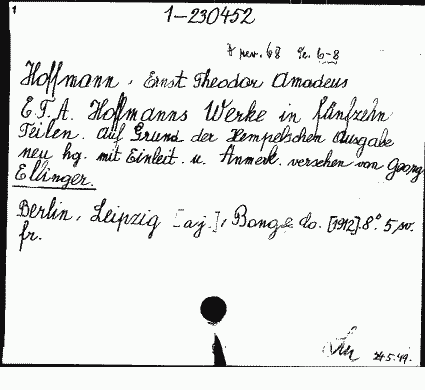 1
1-230452
Hoffmann, Ernst Theodor Amadeus
E.T.A. Hoffmanns Werke in fünfzehn
Teilen. auf Grund der Hempelschen Ausgabe
neu hg. mit Einleit. u. Anmerk. versehen von Georg
Ellinger.
Berlin, Leipzig [a.j.], Bong & Co. [1912]. 8° 5
fr.
24.5.49.